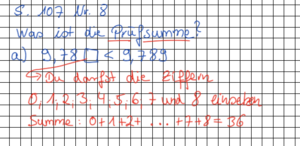 S. 107 Nr. 8
Was ist die Prüfsumme?
a) 9,78☐ < 9,789
↳ Du darfst die Ziffern
0, 1, 2, 3, 4, 5, 6, 7 und 8 einsetzen
Summe: 0+1+2+ ... +7+8 = 36